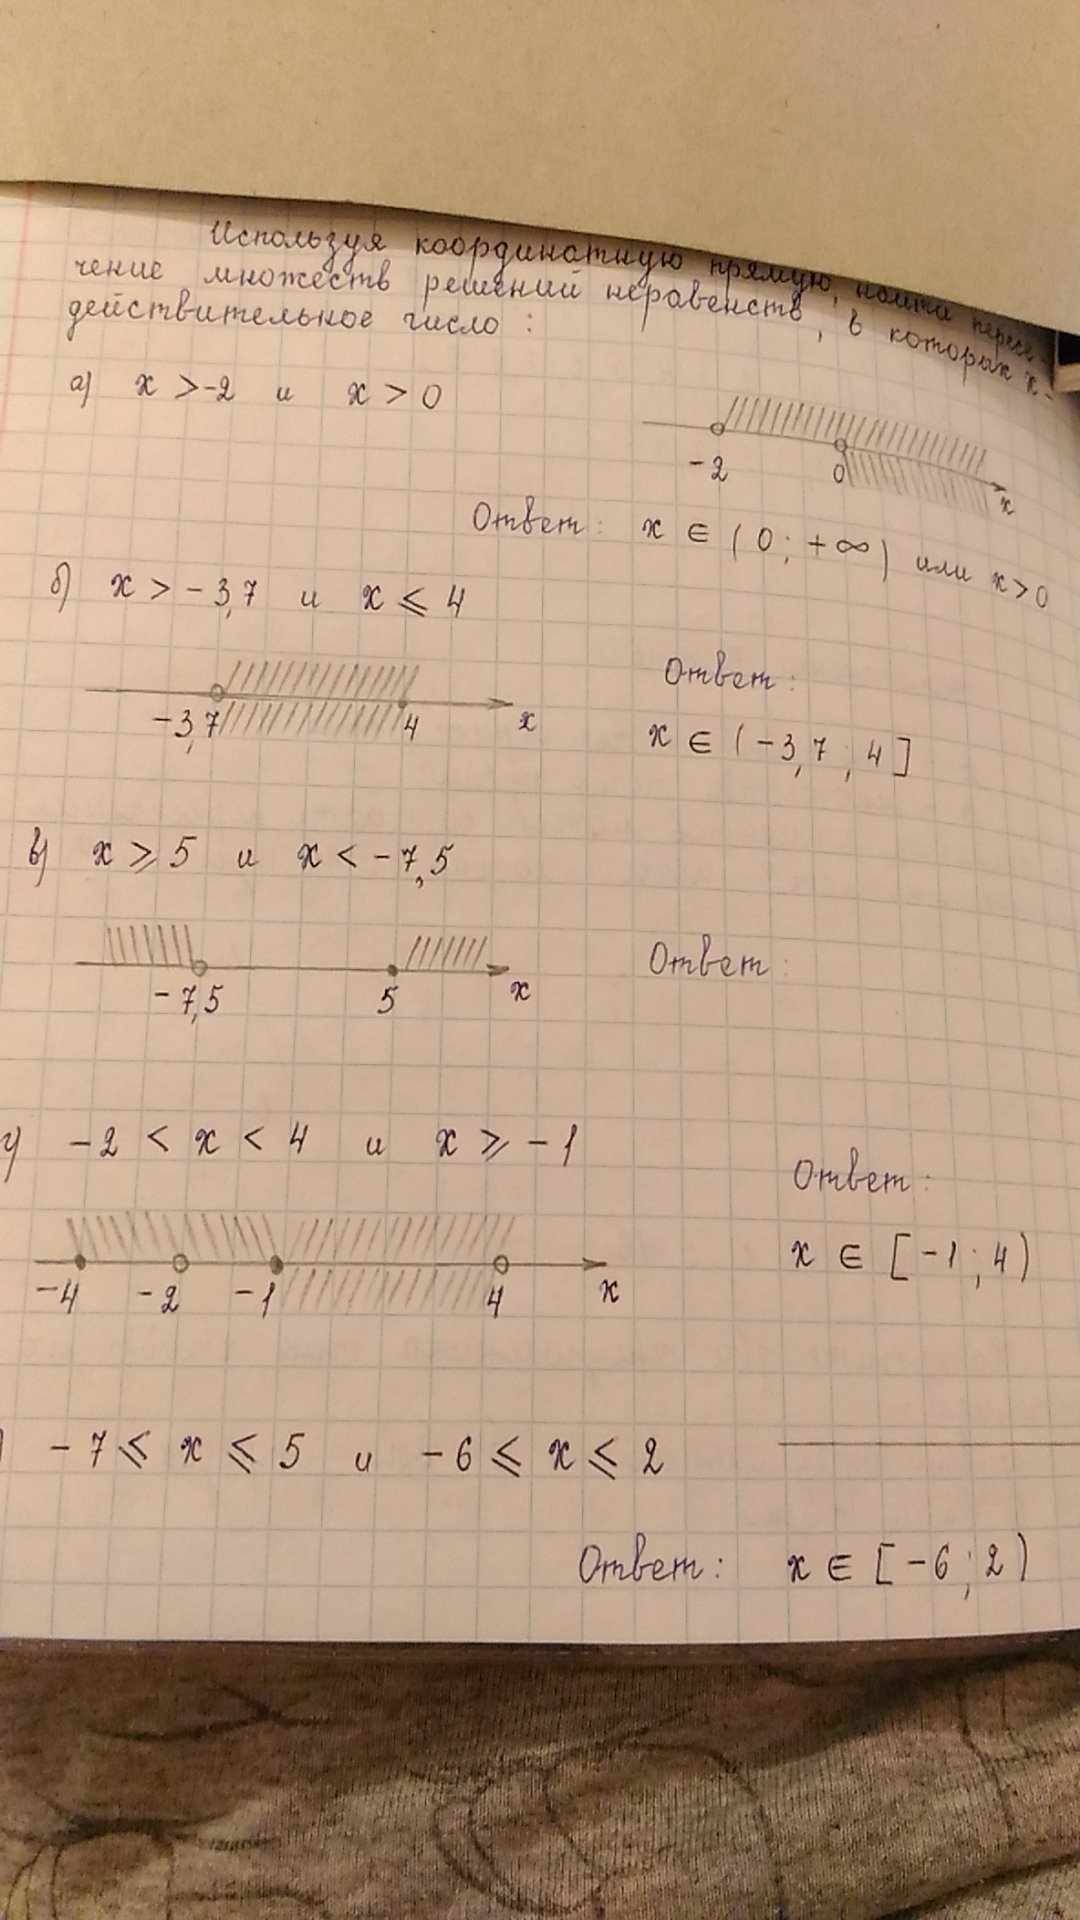 Используя координатную прямую, найти пересе-
чение множеств решений неравенств, в которых x -
действительное число :
а) x > -2 и x > 0
-2 0 x
Ответ : x ∈ ( 0 ; +∞ ) или x > 0
б) x > -3,7 и x ⩽ 4
-3,7 4 x
Ответ :
x ∈ ( -3,7 ; 4 ]
в) x ⩾ 5 и x < -7,5
-7,5 5 x
Ответ :
г) -2 < x < 4 и x ⩾ -1
-4 -2 -1 4 x
Ответ :
x ∈ [ -1 ; 4 )
) -7 ⩽ x ⩽ 5 и -6 ⩽ x ⩽ 2
Ответ : x ∈ [ -6 ; 2 )